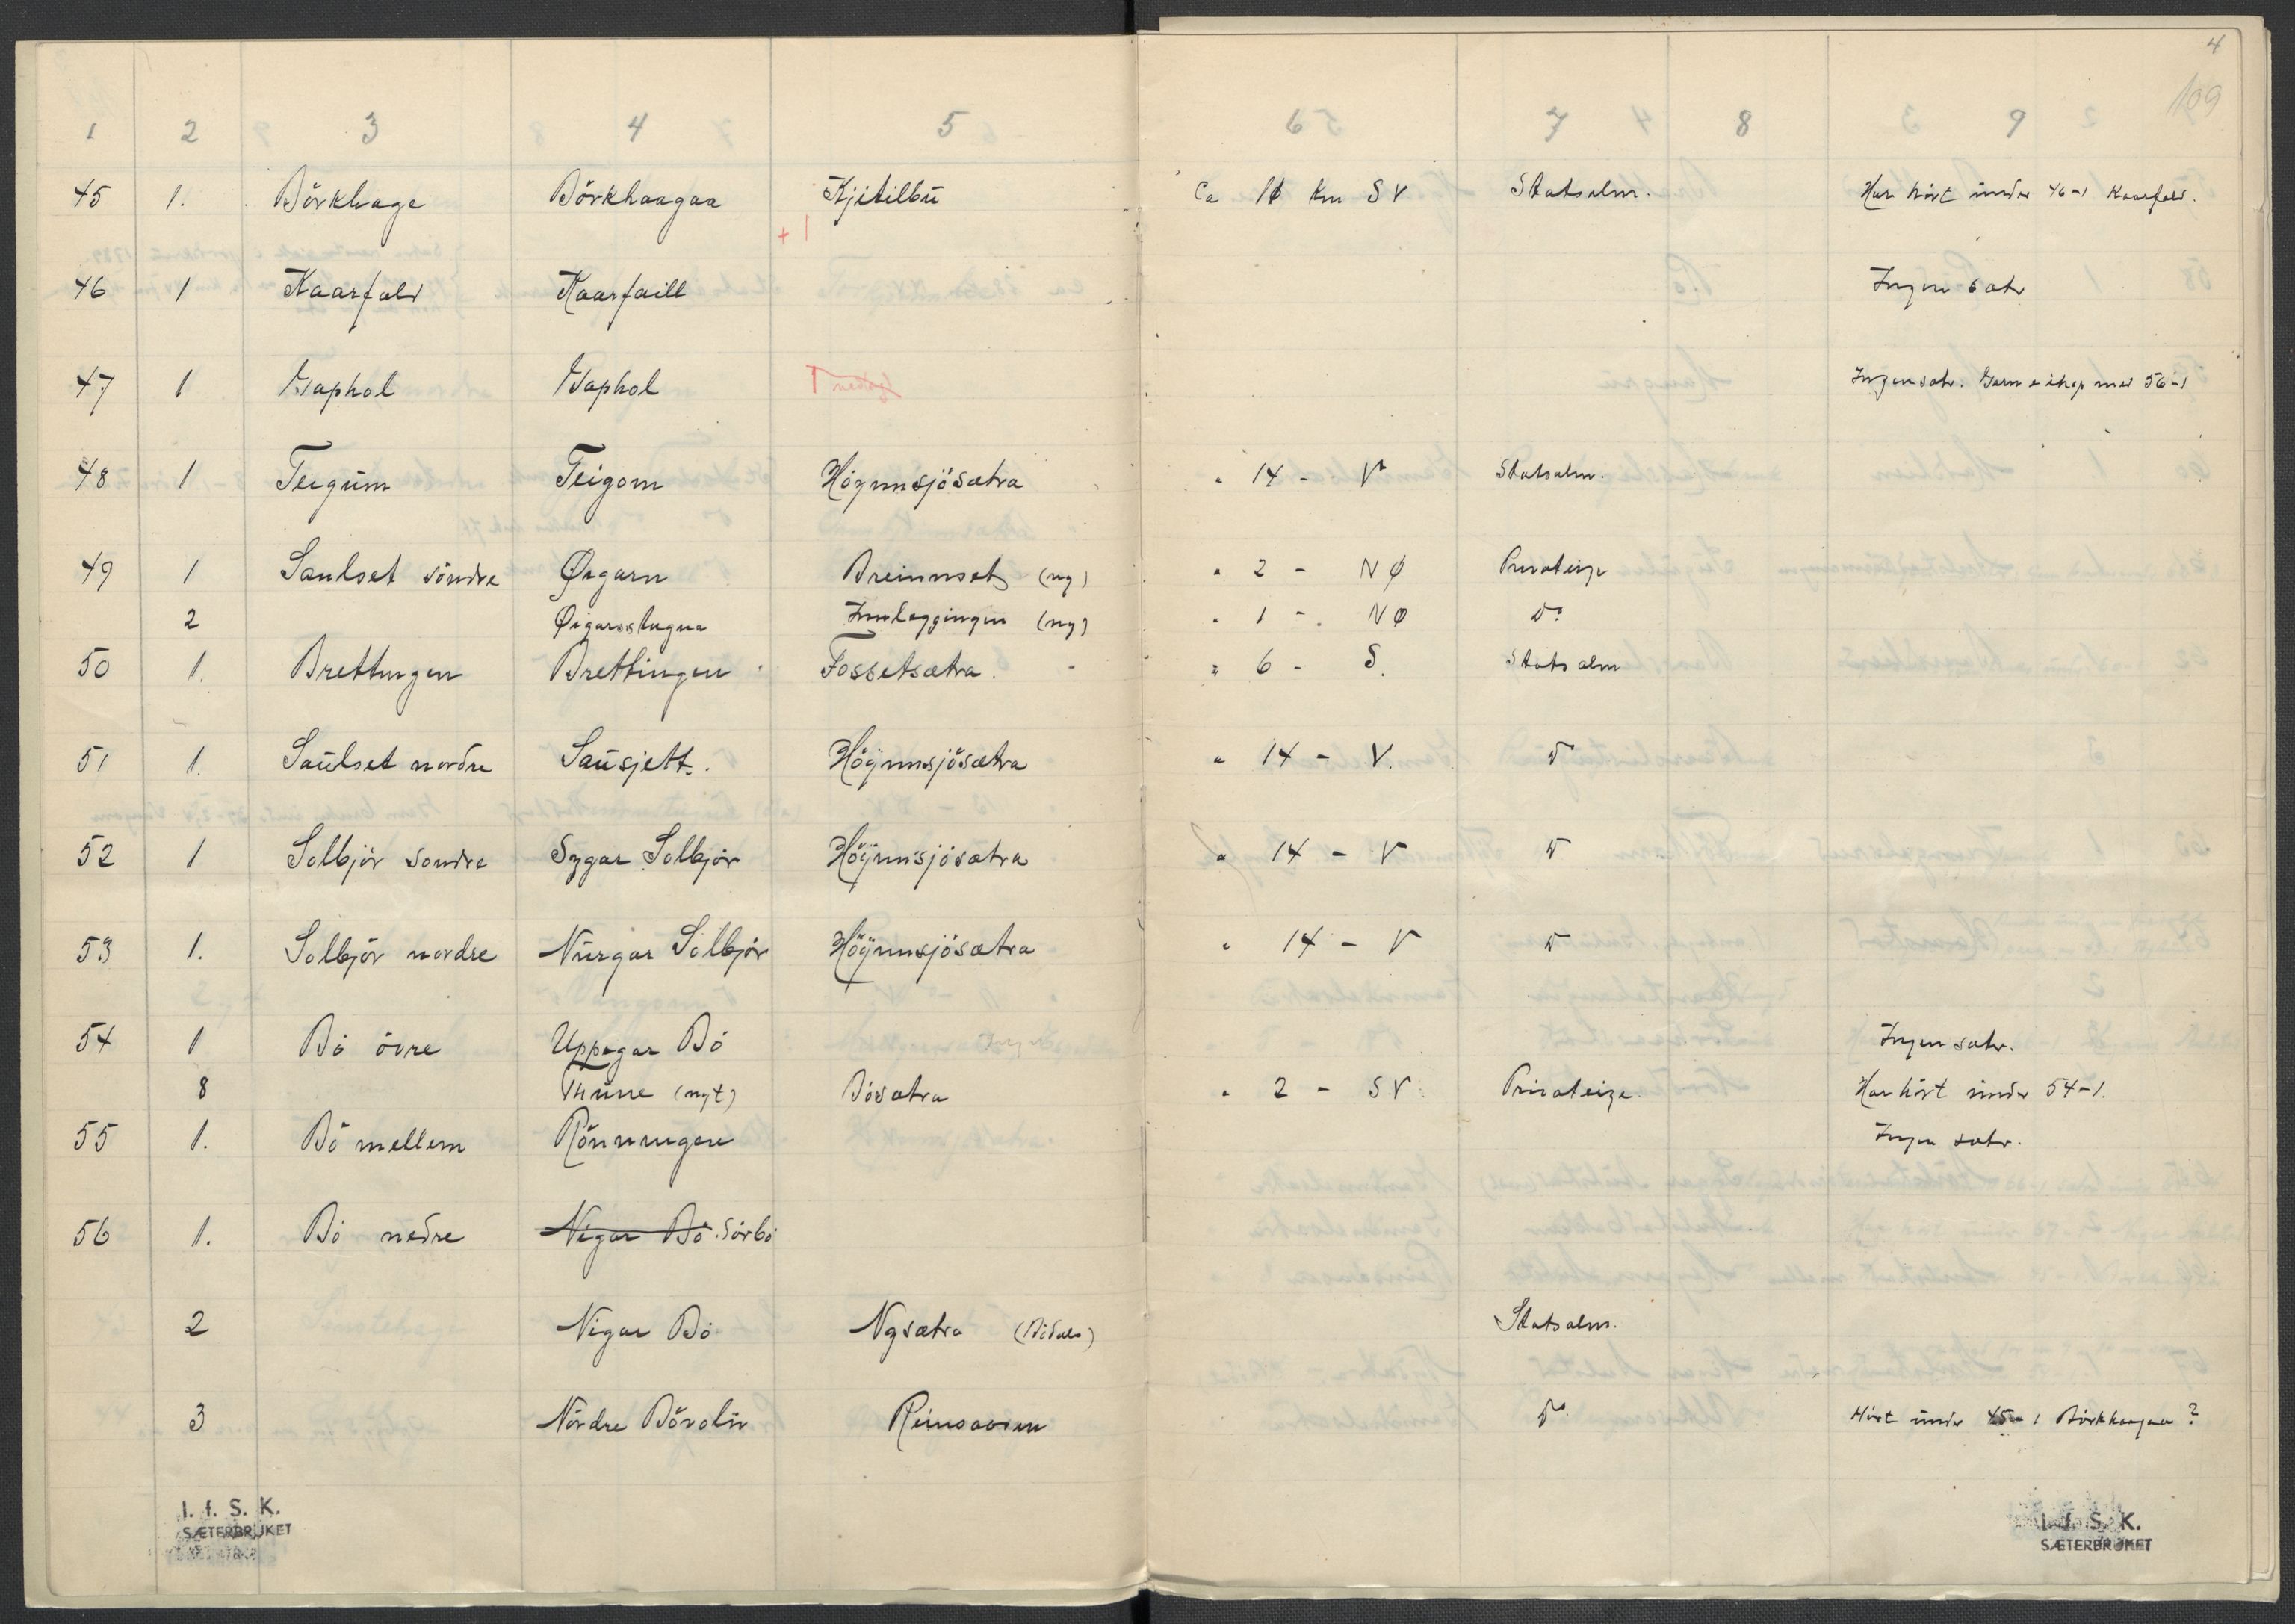 4
109
1 2 3 4 5 6 7 8 9
45 1. Börkhage Börkhaagaa Kjitilbu Ca 10 km SV Statsalm. Har hört under 46-1 Kaarfald.
+ 1
46 1 Kaarfald Kaarfaill Ingen sætr
47 1 Gaphol Gaphol Ingen sætr. 56-1
48 1 Teigum Teigom Högnnsjösætra " 14 - V Statsalm.
49 1 Saulset söndre Øygarn Breinnset (ny) " 2 - NØ Privateige
2 Øigarsstugua Innleggingin (ny) " 1 - NØ Do
50 1. Brettingen Brettingen Fossetsætra. " 6 - S. Statsalm
51 1. Saulset nordre Sausjett. Högnnsjösætra " 14 - V. D
52 1 Solbjör söndre Sygar Solbjör Högnnsjösætra " 14 - V D
53 1. Solbjör nordre Nurgar Solbjör Högnnsjösætra " 14 - V D
54 1 Bö övre Uppegar Bö Ingen sætr.
8 Thune (nyt) Bösætra " 2 - SV Privateige Har hört under 54-1.
55 1. Bö mellem Rönningen Ingen sætr.
56 1. Bö nedre Nigar Bö. Sörbö
2 Nigar Bö Nysætra Statsalm.
3 Nördre Bövolir Reinsaaren Do. Hört under 45-1 Börkhaagaa?
I. f. S. K.
SÆTERBRUKET
I. f. S. K.
SÆTERBRUKET